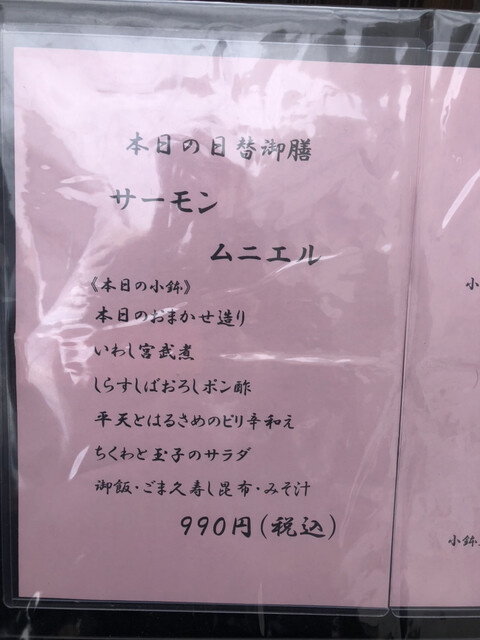 本日の日替御膳
サーモン
ムニエル
《本日の小鉢》
本日のおまかせ造り
いわし宮武煮
しらすしばおろしポン酢
平天とはるさめのピリ辛和え
ちくわと玉子のサラダ
御飯・ごま久寿し昆布・みそ汁
990円(税込)
小
小鉢